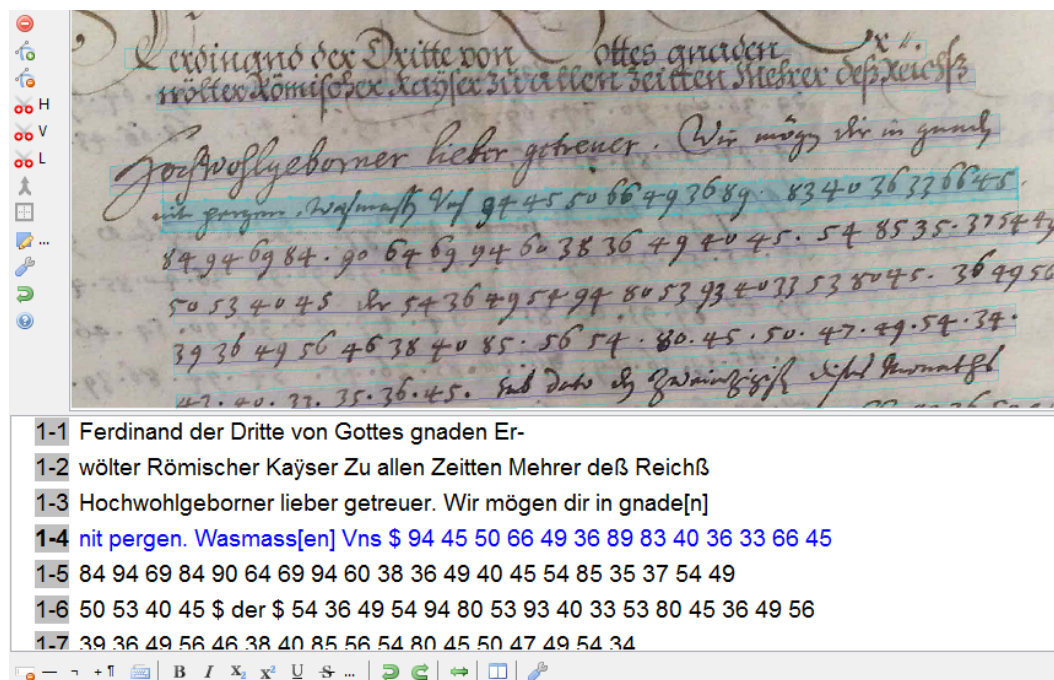 Ferdinand der Dritte von Gottes gnaden Er.
wölter Römischer Kaÿser Zu allen Zeitten Mehrer deß Reichß
Hochwohlgeborner lieber getreuer. Wir mögen dir in gnade
nit pergen. Wasmass Vns 94 45 50 66 49 36 89. 83 40 36 33 66 45.
84 94 69 84. 90 64 69 94 60 38 36 49 40 45. 54 85 35. 37 54 49
50 53 40 45 der 54 36 49 54 94 80 53 93 40 33 53 80 45. 36 49 56
39 36 49 56 46 38 40 85. 56 54. 80. 45. 50. 47. 49. 54. 34.
40. 33. 35. 36. 45. sub dato Monaths
H
V
L
...
1-1 Ferdinand der Dritte von Gottes gnaden Er-
1-2 wölter Römischer Kaÿser Zu allen Zeitten Mehrer deß Reichß
1-3 Hochwohlgeborner lieber getreuer. Wir mögen dir in gnade[n]
1-4 nit pergen. Wasmass[en] Vns $ 94 45 50 66 49 36 89 83 40 36 33 66 45
1-5 84 94 69 84 90 64 69 94 60 38 36 49 40 45 54 85 35 37 54 49
1-6 50 53 40 45 $ der $ 54 36 49 54 94 80 53 93 40 33 53 80 45 36 49 56
1-7 39 36 49 56 46 38 40 85 56 54 80 45 50 47 49 54 34
— ¬ +¶ B I X₂ X² U S ...